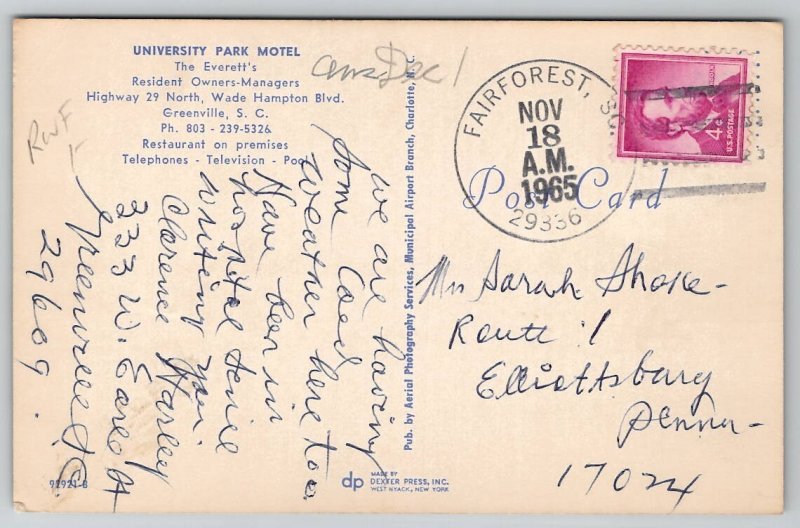 UNIVERSITY PARK MOTEL
The Everett's
Resident Owners-Managers
Highway 29 North, Wade Hampton Blvd.
Greenville, S. C.
Ph. 803 - 239-5326
Restaurant on premises
Telephones - Television - Pool
ans Dec 1
RWF
we are having
some Coed
weather here too.
Have been in
hospital
writing you.
Clarence Harley
333 W. Earle St
Greenville S.C.
29609.
92921-B
Pub. by Aerial Photography Services, Municipal Airport Branch, Charlotte, N. C.
dp
MADE BY
DEXTER PRESS, INC.
WEST NYACK, NEW YORK
FAIRFOREST, SC
NOV
18
A.M.
1965
29336
4¢
U.S. POSTAGE
Post Card
Mrs Sarah Shope-
Route 1
Elliottsburg
Penna-
17024